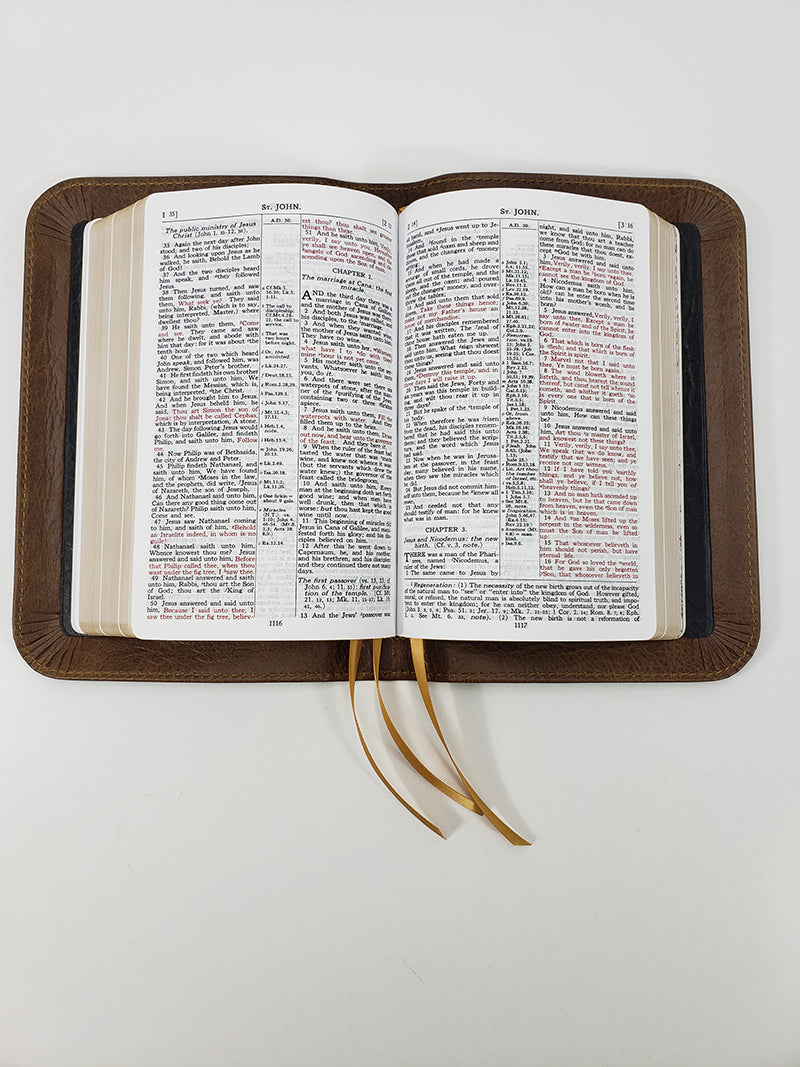 1 35]
ST. JOHN.
[2 13
The public ministry of Jesus
Christ (John 1. 35-12. 50).
35 Again the next day after John
stood, and two of his disciples;
36 And looking upon Jesus as he
walked, he saith, Behold the Lamb
of God!
37 And the two disciples heard
him speak, and they followed
Jesus.
38 Then Jesus turned, and saw
them following, and saith unto
them, What seek ye? They said
unto him, Rabbi, (which is to say,
being interpreted, Master,) where
dwellest thou?
39 He saith unto them, Come
and see. They came and saw
where he dwelt, and abode with
him that day: for it was about the
tenth hour.
40 One of the two which heard
John speak, and followed him, was
Andrew, Simon Peter's brother.
41 He first findeth his own brother
Simon, and saith unto him, We
have found the Messias, which is,
being interpreted, the Christ.
42 And he brought him to Jesus.
And when Jesus beheld him, he
said, Thou art Simon the son of
Jona: thou shalt be called Cephas,
which is by interpretation, A stone.
43 The day following Jesus would
go forth into Galilee, and findeth
Philip, and saith unto him, Follow
44 Now Philip was of Bethsaida,
the city of Andrew and Peter.
45 Philip findeth Nathanael, and
saith unto him, We have found
him, of whom Moses in the law,
and the prophets, did write, Jesus
of Nazareth, the son of Joseph.
46 And Nathanael said unto him,
Can there any good thing come out
of Nazareth? Philip saith unto him,
Come and see.
47 Jesus saw Nathanael coming
to him, and saith of him, Behold
an Israelite indeed, in whom is no
guile!
48 Nathanael saith unto him,
Whence knowest thou me? Jesus
answered and said unto him, Before
that Philip called thee, when thou
wast under the fig tree, I saw thee.
49 Nathanael answered and saith
unto him, Rabbi, thou art the Son
of God; thou art the King of
Israel.
50 Jesus answered and said unto
him, Because I said unto thee, I
saw thee under the fig tree, believ-
A.D. 30.
est thou? thou shalt see greater
things than these.
51 And he saith unto him, Verily,
verily, I say unto you, Hereafter
ye shall see heaven open, and the
angels of God ascending and de-
scending upon the Son of man.
CHAPTER 2.
The marriage at Cana: the first
miracle.
AND the third day there was a
marriage in Cana of Galilee;
2 And both Jesus was called, and
his disciples, to the marriage.
3 And when they wanted wine,
the mother of Jesus saith unto him,
They have no wine.
4 Jesus saith unto her, Woman,
what have I to do with thee?
mine hour is not yet come.
5 His mother saith unto the ser-
vants, Whatsoever he saith unto
you, do it.
6 And there were set there six
waterpots of stone, after the man-
ner of the purifying of the Jews,
containing two or three firkins
apiece.
7 Jesus saith unto them, Fill the
waterpots with water. And they
filled them up to the brim.
8 And he saith unto them, Draw
out now, and bear unto the governor
of the feast. And they bare it.
9 When the ruler of the feast had
tasted the water that was made
wine, and knew not whence it was:
(but the servants which drew the
water knew;) the governor of the
feast called the bridegroom,
10 And saith unto him, Every
man at the beginning doth set forth
good wine; and when men have
well drunk, then that which is
worse: but thou hast kept the good
wine until now.
11 This beginning of miracles did
Jesus in Cana of Galilee, and mani-
fested forth his glory; and his dis-
ciples believed on him.
12 After this he went down to
Capernaum, he, and his mother,
and his brethren, and his disciples:
and they continued there not many
days.
The first passover (vs. 13, 23; cf.
John 6. 4; 11. 55); first purifica-
tion of the temple. (Cf. Mt.
21. 12, 13; Mk. 11. 15-17; Lk. 19.
45, 46.)
13 And the Jews' passover was
1116
2 14]
ST. JOHN.
[3 16
hand, and Jesus went up to Je-
14 And found in the temple
those that sold oxen and sheep and
doves, and the changers of money
15 And when he had made a
scourge of small cords, he drove
them all out of the temple, and the
sheep, and the oxen; and poured
out the changers' money, and over-
threw the tables;
16 And said unto them that sold
doves, Take these things hence;
make not my Father's house an
house of merchandise.
17 And his disciples remembered
that it was written, The zeal of
thine house hath eaten me up.
18 Then answered the Jews and
said unto him, What sign shewest
thou unto us, seeing that thou doest
these things?
19 Jesus answered and said unto
them, Destroy this temple, and in
three days I will raise it up.
20 Then said the Jews, Forty and
six years was this temple in build-
ing, and wilt thou rear it up in
three days?
21 But he spake of the temple of
his body.
22 When therefore he was risen
from the dead, his disciples remem-
bered that he had said this unto
them; and they believed the scrip-
ture, and the word which Jesus
had said.
23 Now when he was in Jerusa-
lem at the passover, in the feast
day, many believed in his name,
when they saw the miracles which
he did.
24 But Jesus did not commit him-
self unto them, because he knew all
men,
25 And needed not that any
should testify of man: for he knew
what was in man.
CHAPTER 3.
Jesus and Nicodemus: the new
birth. (Cf. v. 3, note.)
THERE was a man of the Phari-
sees, named Nicodemus, a
ruler of the Jews:
2 The same came to Jesus by
A.D. 30.
night, and said unto him, Rabbi,
we know that thou art a teacher
come from God: for no man can do
these miracles that thou doest, ex-
cept God be with him.
3 Jesus answered and said unto
him, Verily, verily, I say unto thee,
Except a man be born again, he
cannot see the kingdom of God.
4 Nicodemus saith unto him,
How can a man be born when he is
old? can he enter the second time
into his mother's womb, and be
born?
5 Jesus answered, Verily, verily, I
say unto thee, Except a man be
born of water and of the Spirit, he
cannot enter into the kingdom of
God.
6 That which is born of the flesh
is flesh; and that which is born of
the Spirit is spirit.
7 Marvel not that I said unto
thee, Ye must be born again.
8 The wind bloweth where it
listeth, and thou hearest the sound
thereof, but canst not tell whence it
cometh, and whither it goeth: so
is every one that is born of the
Spirit.
9 Nicodemus answered and said
unto him, How can these things
be?
10 Jesus answered and said unto
him, Art thou a master of Israel,
and knowest not these things?
11 Verily, verily, I say unto thee,
We speak that we do know, and
testify that we have seen; and ye
receive not our witness.
12 If I have told you earthly
things, and ye believe not, how
shall ye believe, if I tell you of
heavenly things?
13 And no man hath ascended up
to heaven, but he that came down
from heaven, even the Son of man
which is in heaven.
14 And as Moses lifted up the
serpent in the wilderness, even so
must the Son of man be lifted
up:
15 That whosoever believeth in
him should not perish, but have
eternal life.
16 For God so loved the world,
that he gave his only begotten
Son, that whosoever believeth in
Regeneration: (1) The necessity of the new birth grows out of the incapacity
of the natural man to "see" or "enter into" the kingdom of God. However gifted,
moral, or refined, the natural man is absolutely blind to spiritual truth, and impo-
tent to enter the kingdom; for he can neither obey, understand, nor please God
(John 3. 3, 5, 6; Psa. 51. 5; Jer. 17. 9; Mk. 7. 21-23; 1 Cor. 2. 14; Rom. 8. 7, 8; Eph.
See Mt. 6. 33, note). (2) The new birth is not a reformation of
1117